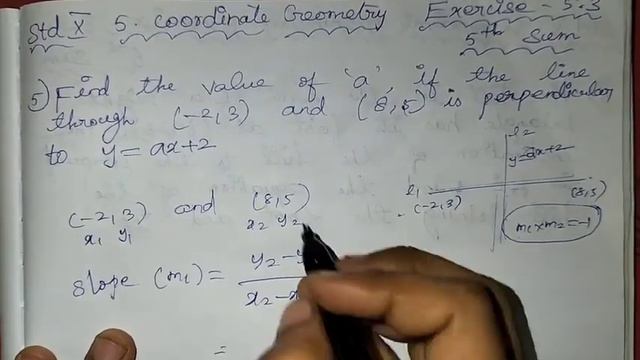 Std X 5. Coordinate Geometry Exercise - 5.3
5th Sum
5) Find the value of 'a', if the line
through (-2, 3) and (8, 5) is perpendicular
to y = ax+2
l2
y = ax+2
l1
(-2, 3)
(8, 5)
m1 × m2 = -1
(-2, 3) and (8, 5)
x1 y1 x2 y2
Slope (m1) = y2 - y
x2 - x
=